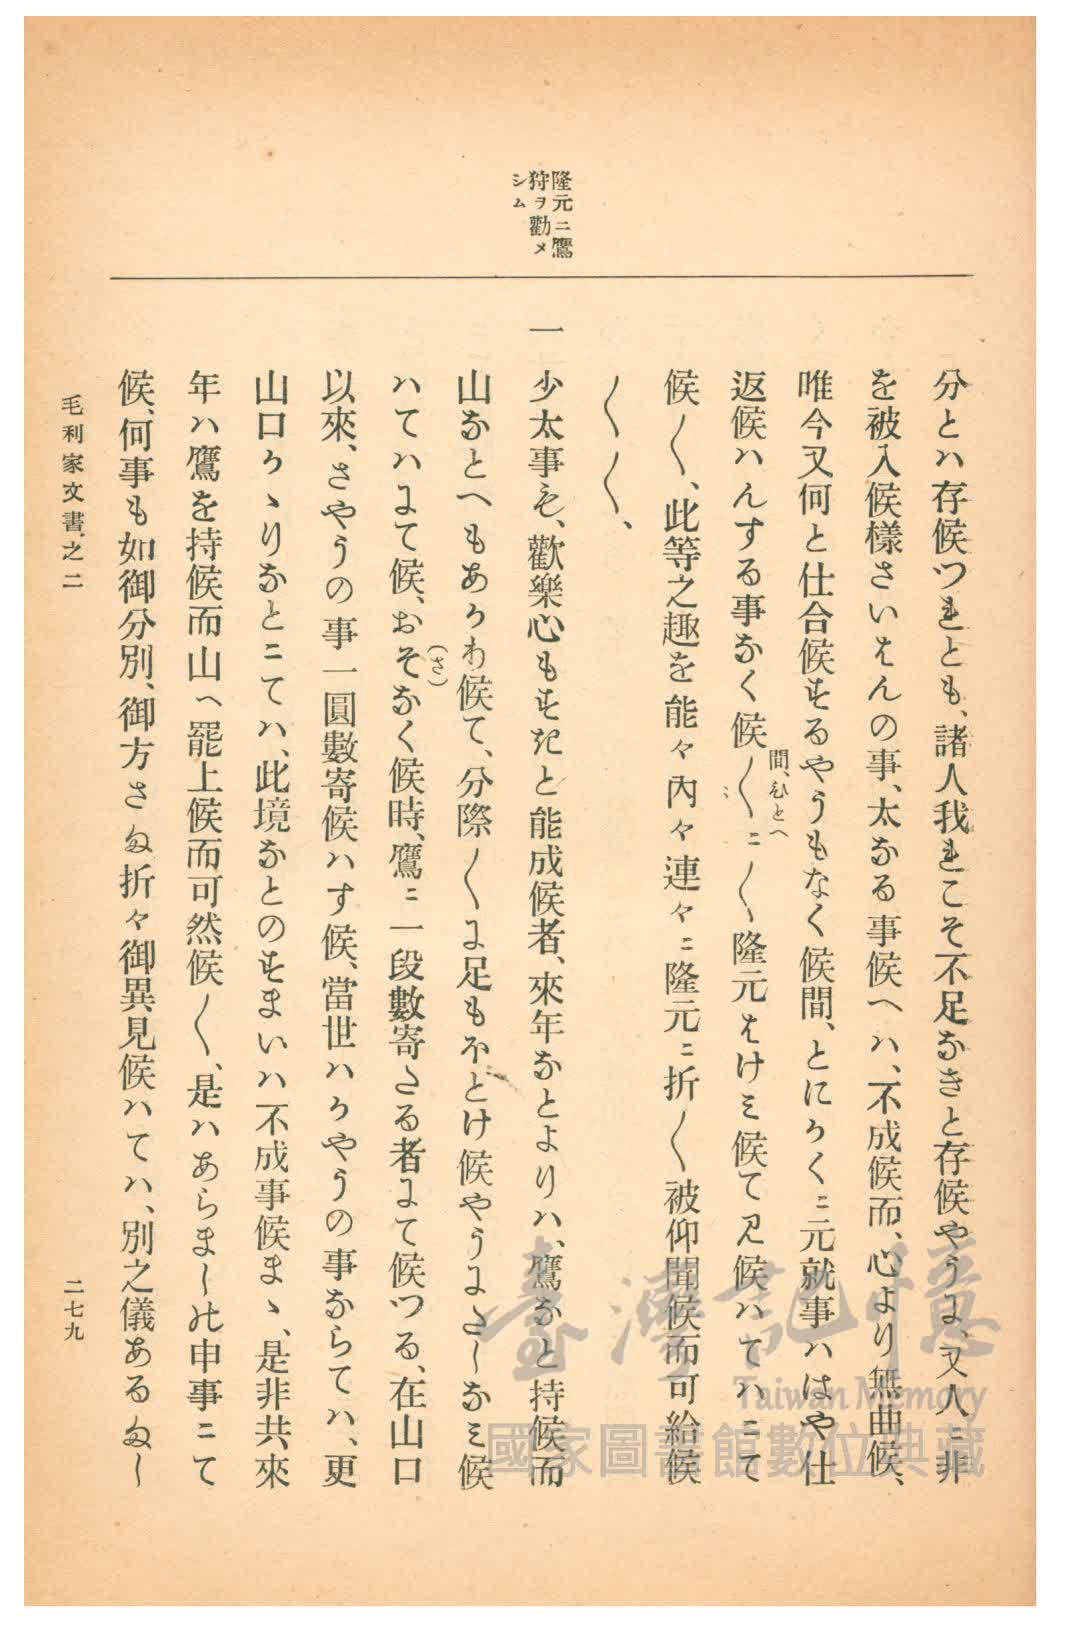 隆元ニ鷹
狩ヲ勸メ
シム
分とハ存候つれとも、諸人我れこそ不足なきと存候やうよ、又人ニ非
を被入候様さいはんの事、太なる事候へハ、不成候而、心より無曲候、
唯今又何と仕合候するやうもなく候間、とにかくニ元就事ハはや仕
返候ハんする事なく候〱ニ〱隆元はけミ候て見候ハてハにて
間、ひとへ
候〱、此等之趣を能々內々連々ニ隆元ニ折〱被仰聞候而可給候
〱〱、
一 少太事も、歡樂心もすきと能成候者、來年なとよりハ、鷹なと持候而
山なとへもあかわ候て、分際〱よ足もほとけ候やうよさしなミ候
(さ)
ハてハよて候、おそなく候時、鷹ニ一段數寄さる者よて候つる、在山口
以來、さやうの事一圓數寄候ハす候、當世ハかやうの事ならてハ、更
山口かゝりなとにてハ、此境なとのすまいハ不成事候まゝ、是非共來
年ハ鷹を持候而山へ罷上候而可然候〱、是ハあらまし比申事ニて
候、何事も如御分別、御方さま折々御異見候ハてハ、別之儀あるまし
毛利家文書之二
二七九
臺灣記憶
Taiwan Memory
國家圖書館數位典藏